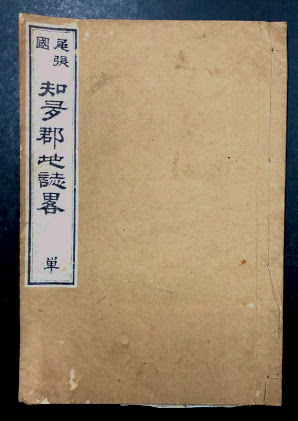 尾張國
知多郡地誌畧
単